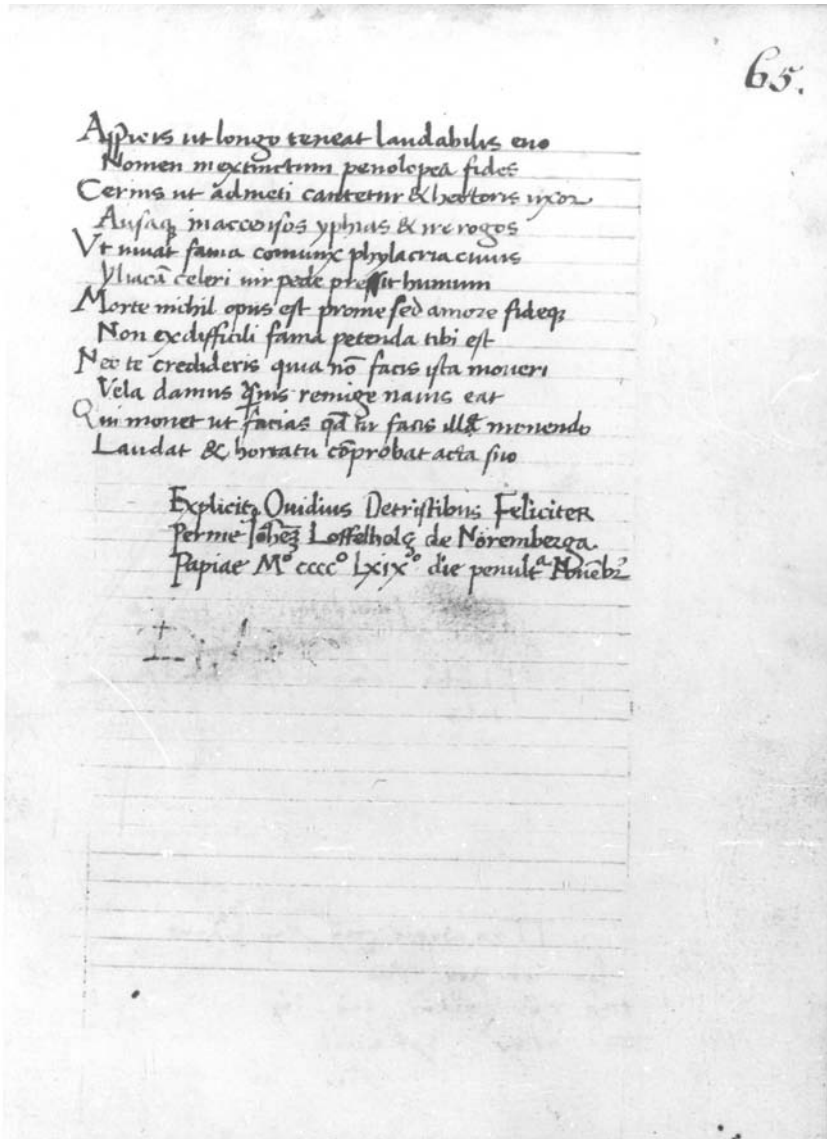 65.
Aspicis ut longo teneat laudabilis evo
Nomen inextinctum penolopea fides
Cernis ut admeti cantetur & hectoris uxor
Ausaq; in accensos yphias & ire rogos
Ut vivat fama coniunx phylacria cuius
Yliacā celeri vir pede pressit humum
Morte nichil opus est pro me sed amore fideq;
Non ex difficili fama petenda tibi est
Nec te credideris quia nō facis ista moveri
Vela damus quis remige navis eat
Qui monet ut facias qd iā facis illę monendo
Laudat & hortatu cōprobat acta suo
Explicit Ovidius De tristibus Feliciter
Per me Johēz Loffelholcz de Noremberga
Papiae Mº ccccº lxixº die penultª Novēbr